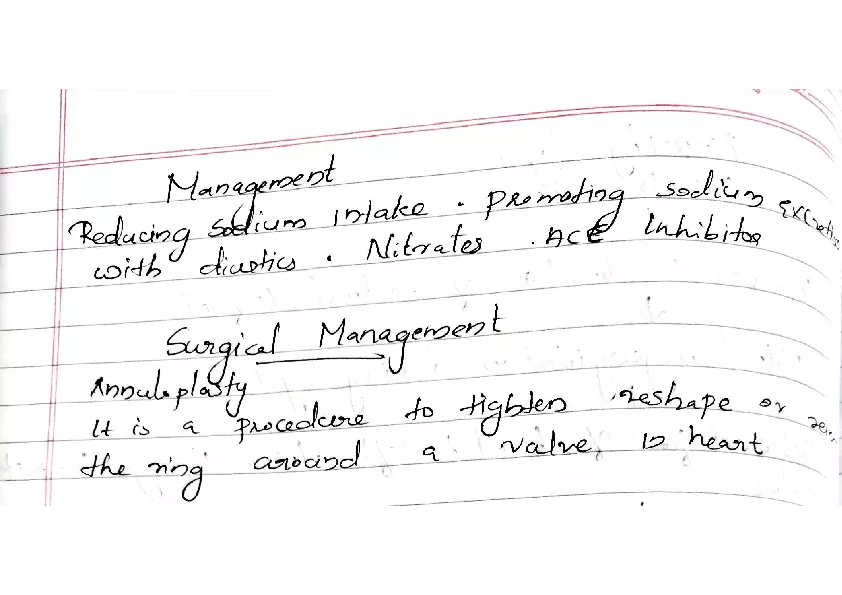 Management
Reducing sodium intake . promoting sodium excretion
with diuetics . Nitrates . ACE Inhibitor
Surgical Management
Annuloplasty
It is a procedure to tighten reshape or
the ring around a valve in heart